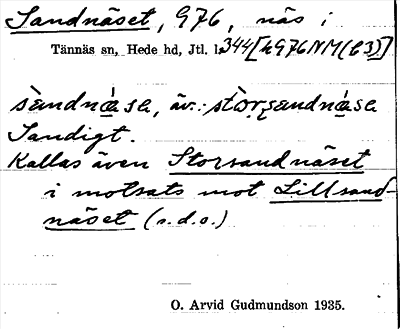 Sandnäset, 976, näs i
Tännäs sn, Hede hd, Jtl. l. 344 [h976NM(63)]
sàndnä́sa, äv. stòrsandnä́sa
Sandigt.
Kallas även Storsandnäset
i motsats mot Lillsand-
näset (s.d.o.)
O. Arvid Gudmundson 1935.